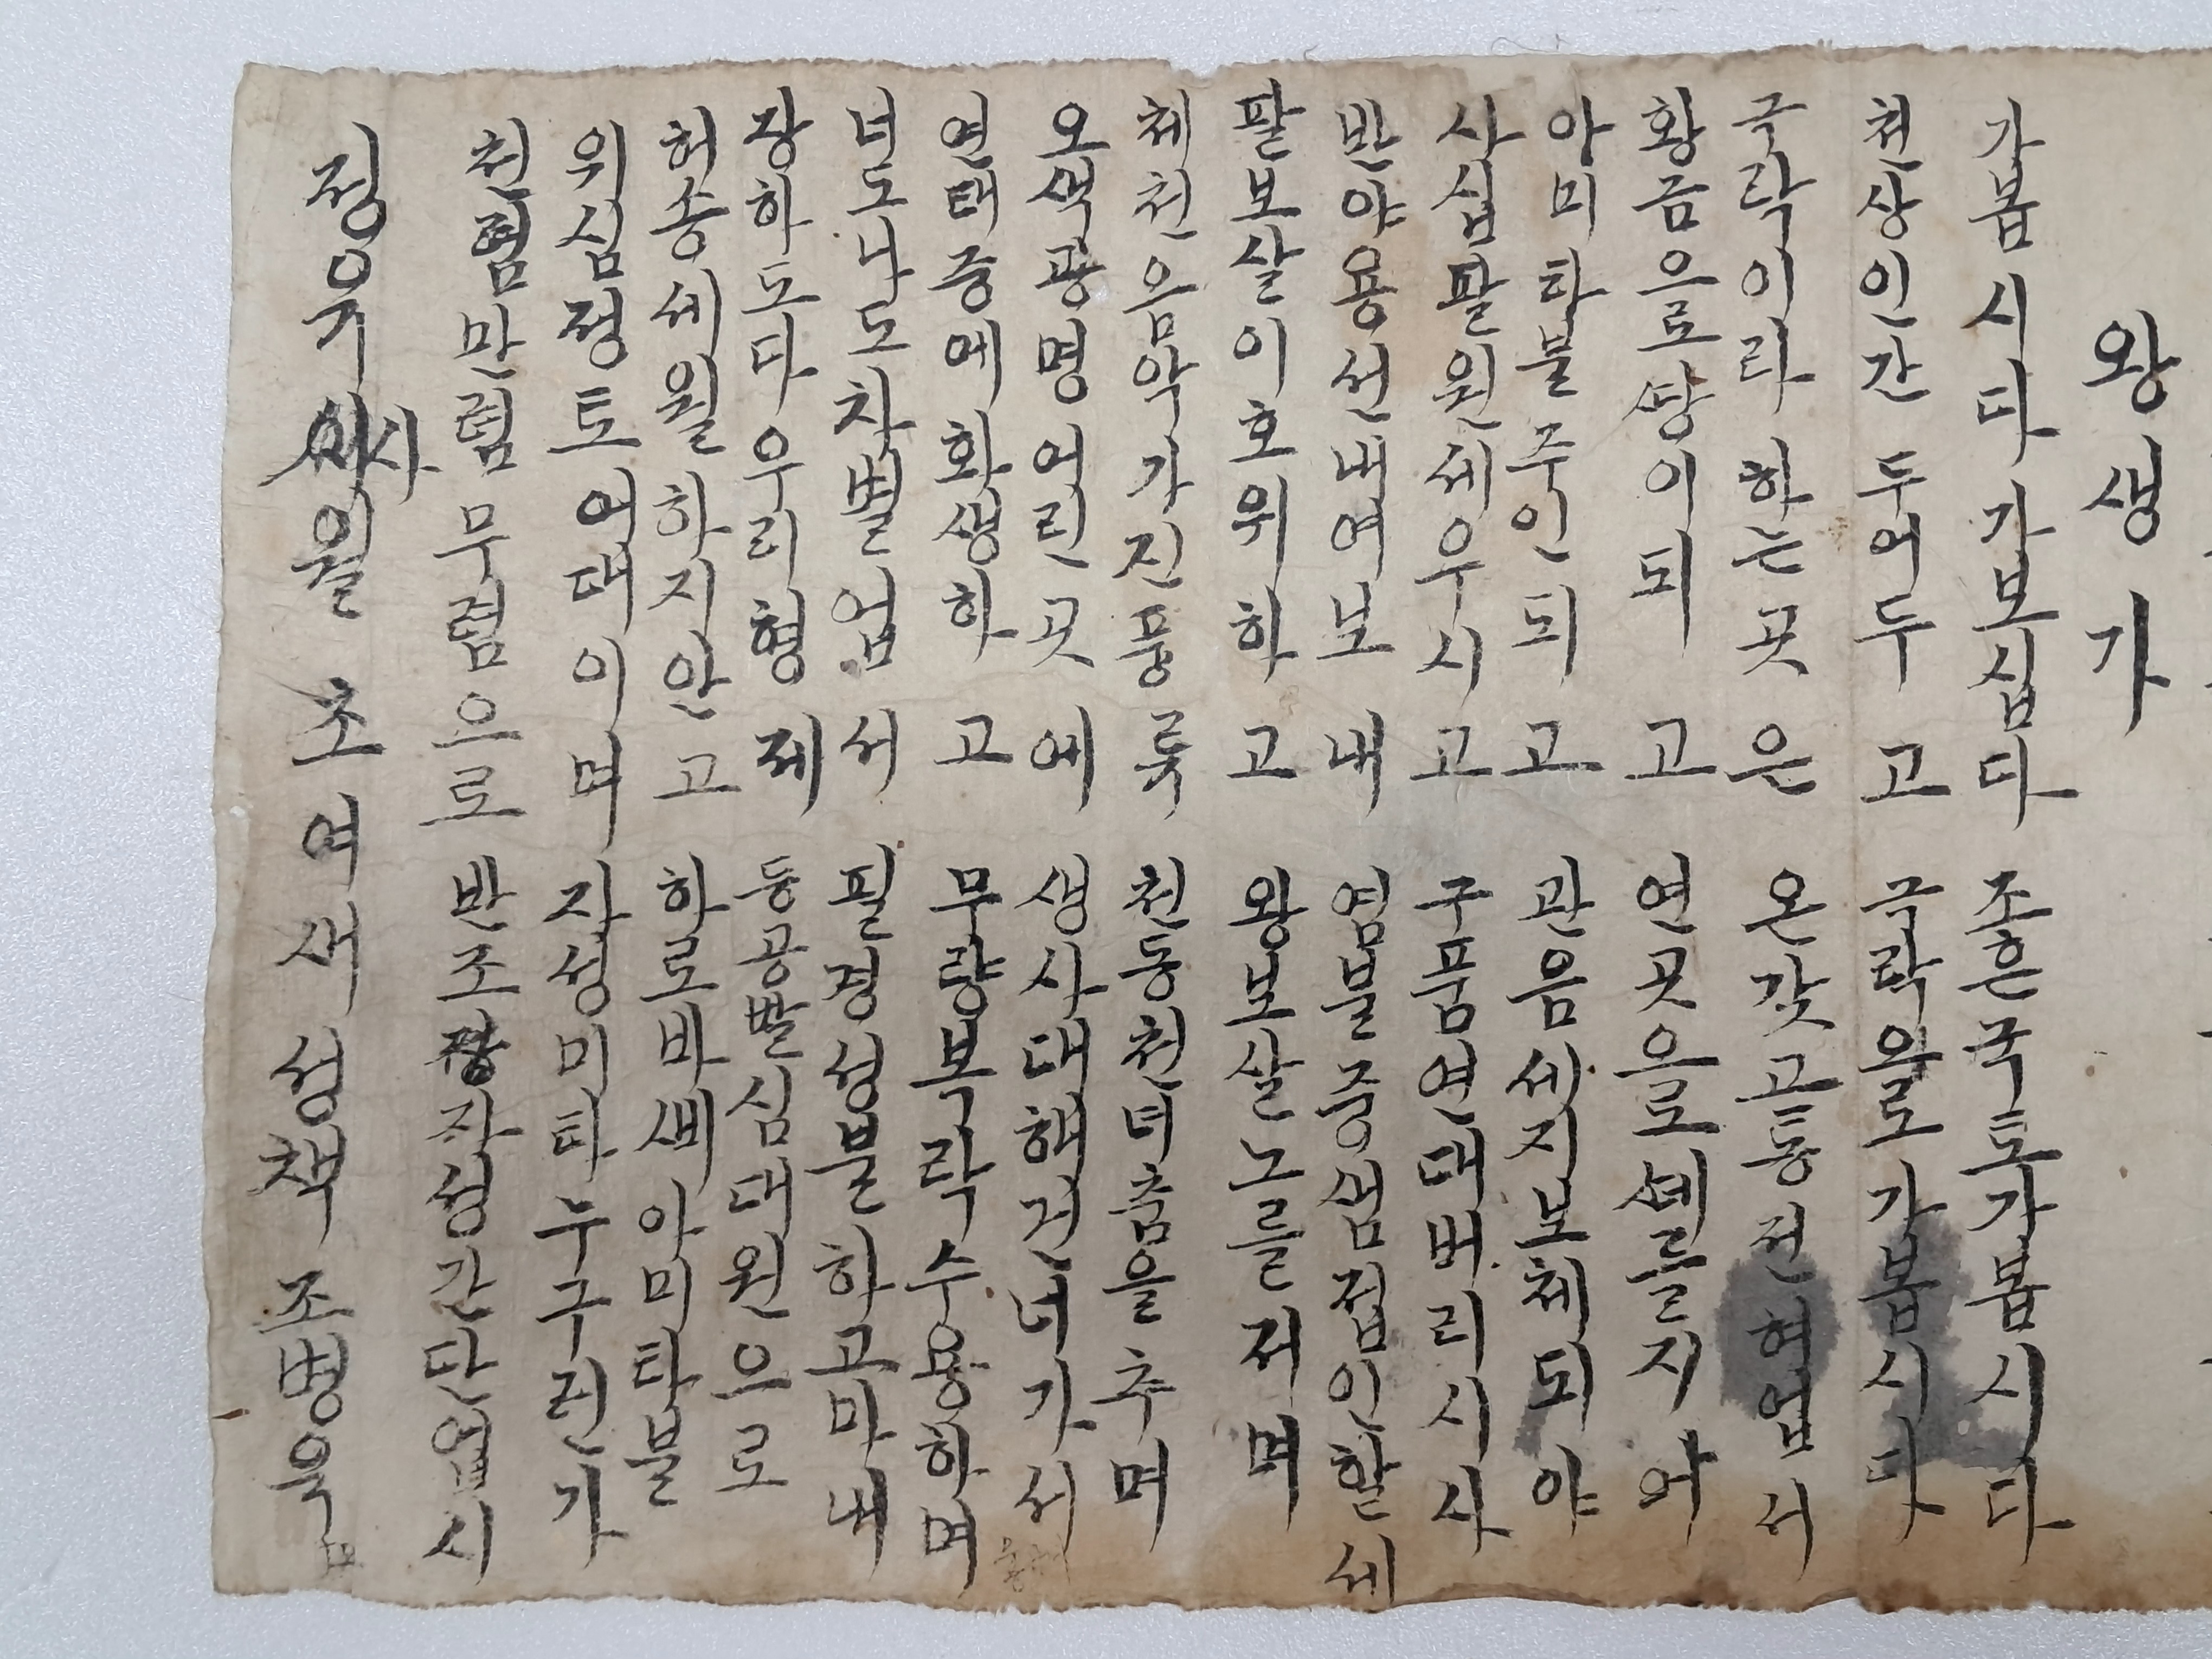 왕생가
가봄시다 가보십다 조흔국토가봄시다
천상인간 두어두고 극락으로가봄시다
극락이라 하는곳은 온갓고통전혀업서
황금으로땅이되고 연곳으로셰를지와
아미타불주인되고 관음세지보체되야
사십팔원세우시고 구품연대버리시사
반야용선내여보내 염불중섬접인할세
팔보살이호위하고 왕보살노를저며
체천음악가진풍륙 천동천녀춤을추며
오색광명어린곳에 생사대해건너가서
연대중에화생하고 무량복락수용하며
너도나도차별업서 필경성불하고마내
장하도다우리형제 동공빨심대원으로
허송세월하지안고 하로바쎄아미타불
위심정토어대이며 자성미타누구런가
천렴만렴무렴으로 반조자성간단업시
정유 사월 초여 서성책 조병욱